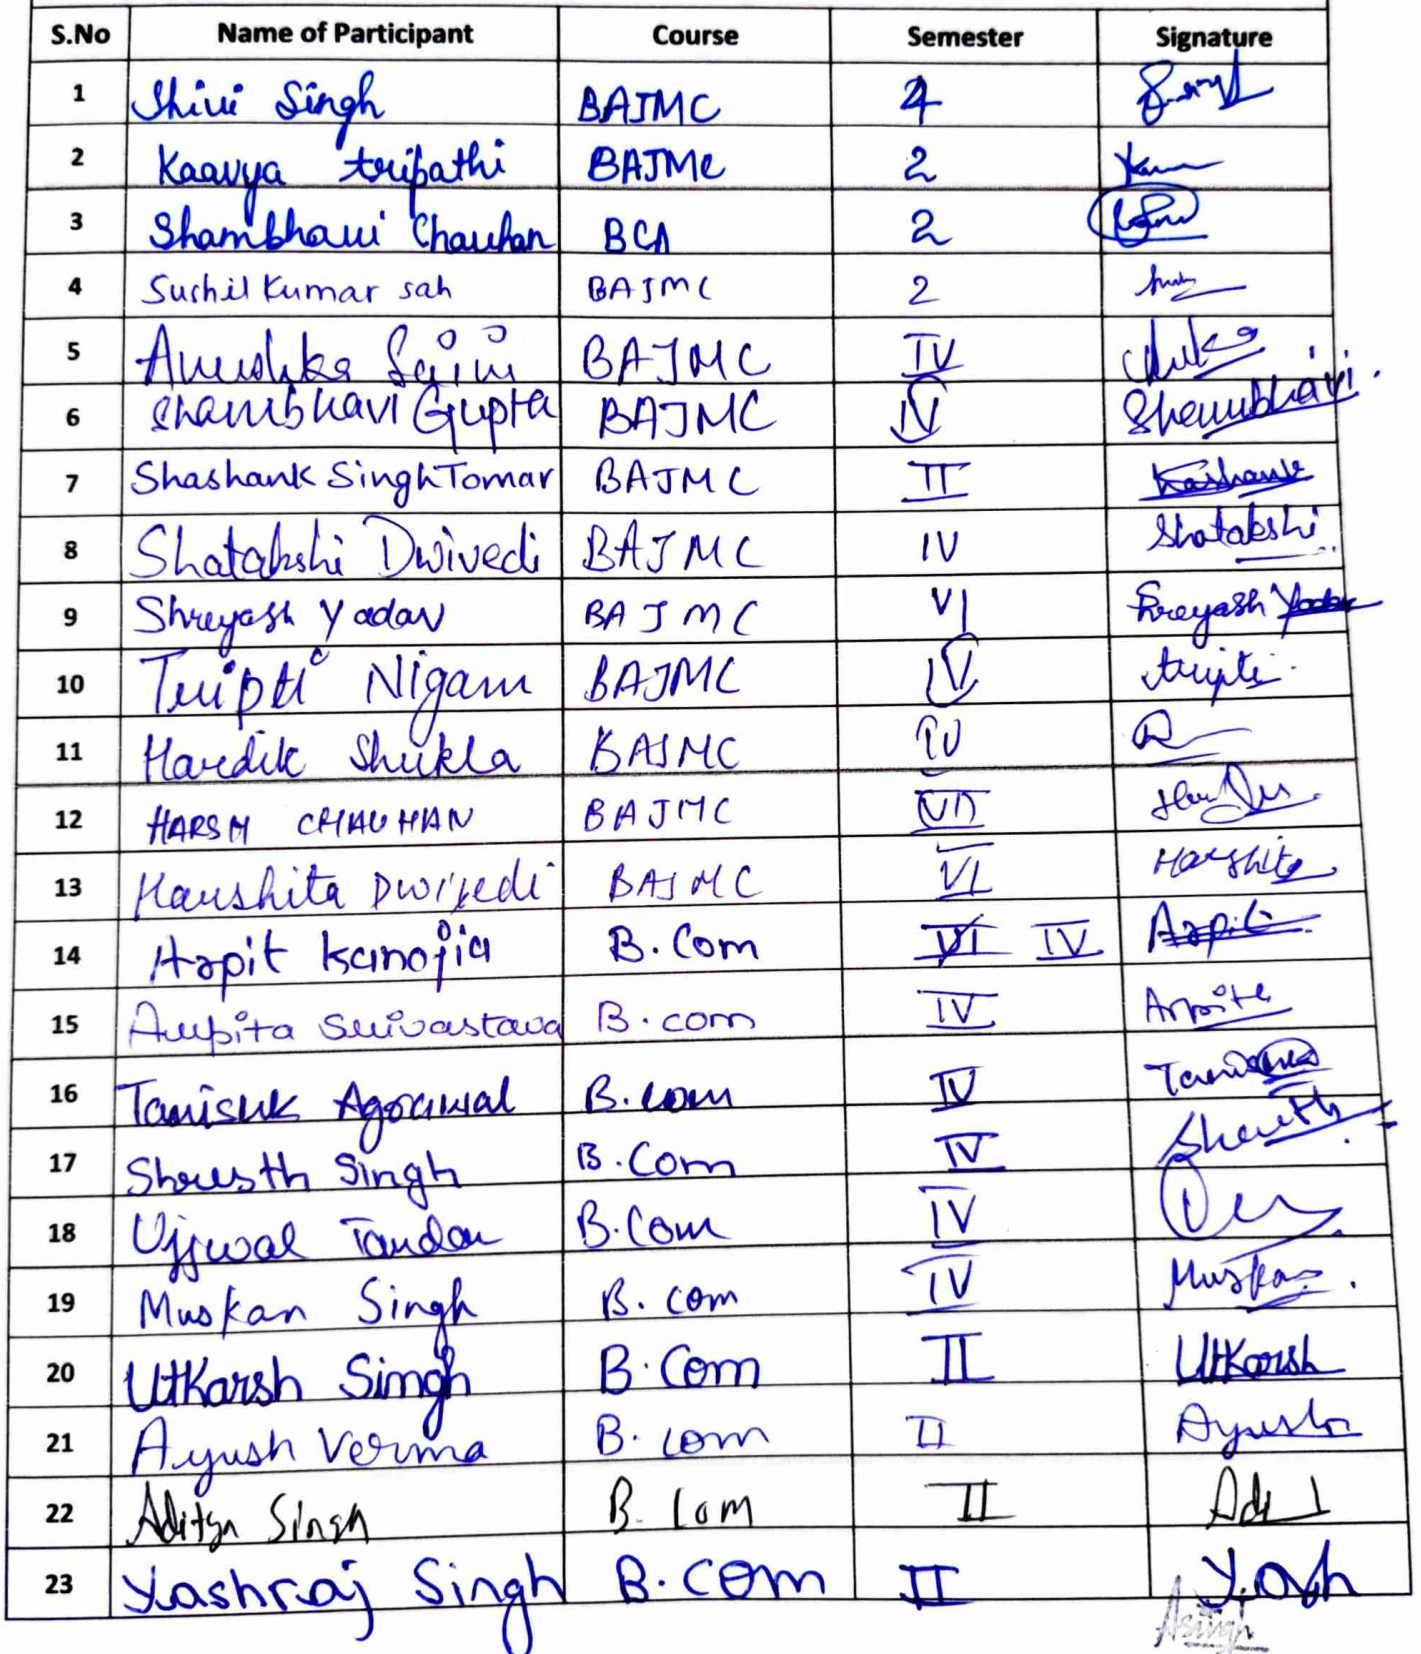 S.No Name of Participant Course Semester Signature
1 Shivi Singh BAJMC 4
2 Kaavya tripathi BAJMC 2
3 Shambhavi Chauhan BCA 2
4 Sushil Kumar sah BAJMC 2
5 Anushka Saini BAJMC IV
6 Shambhavi Gupta BAJMC IV Shambhavi
7 Shashank Singh Tomar BAJMC II
8 Shatakshi Dwivedi BAJMC IV Shatakshi
9 Shreyash Yadav BAJMC VI Shreyash Yadav
10 Tripti Nigam BAJMC IV tripti
11 Hardik Shukla BAJMC IV
12 HARSH CHAUHAN BAJMC
13 Harshita Dwivedi BAJMC VI Harshita
14 Arpit kanojia B.Com VI IV Arpit
15 Arpita Srivastava B.com IV Arpita
16 Tanisuk Agrawal B.com IV
17 Shresth Singh B.Com IV Shresth
18 Ujjwal Tandon B.Com IV
19 Muskan Singh B.com IV Muskan
20 Utkarsh Singh B.Com II Utkarsh
21 Ayush Verma B.com II Ayush
22 Aditya Singh B.Com II
23 Yashraj Singh B.com II Yash
ASingh